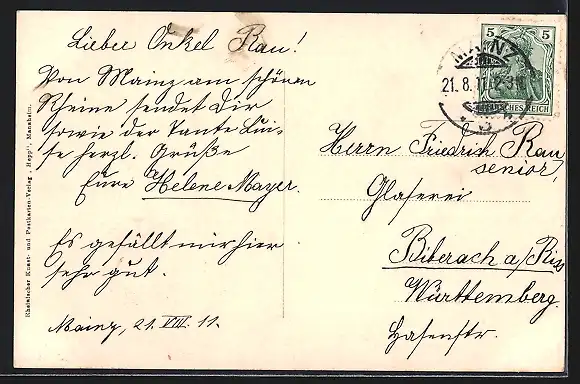 Lieber Onkel Rau!
Von Mainz am schönen
Rheine sendet Dir
sowie der Tante Lui-
se herzl. Grüße
Eure Helene Mayer.
Es gefällt mir hier
sehr gut.
Mainz, 21. VIII. 11.
Rheinischer Kunst- und Postkarten-Verlag „Hepp“, Mannheim.
5 5
DEUTSCHES REICH
MAINZ
21.8.11. 2-3N
Herrn Friedrich Rau
senior,
Glaserei
Biberach a/Riss
Württemberg.
Hasenstr.